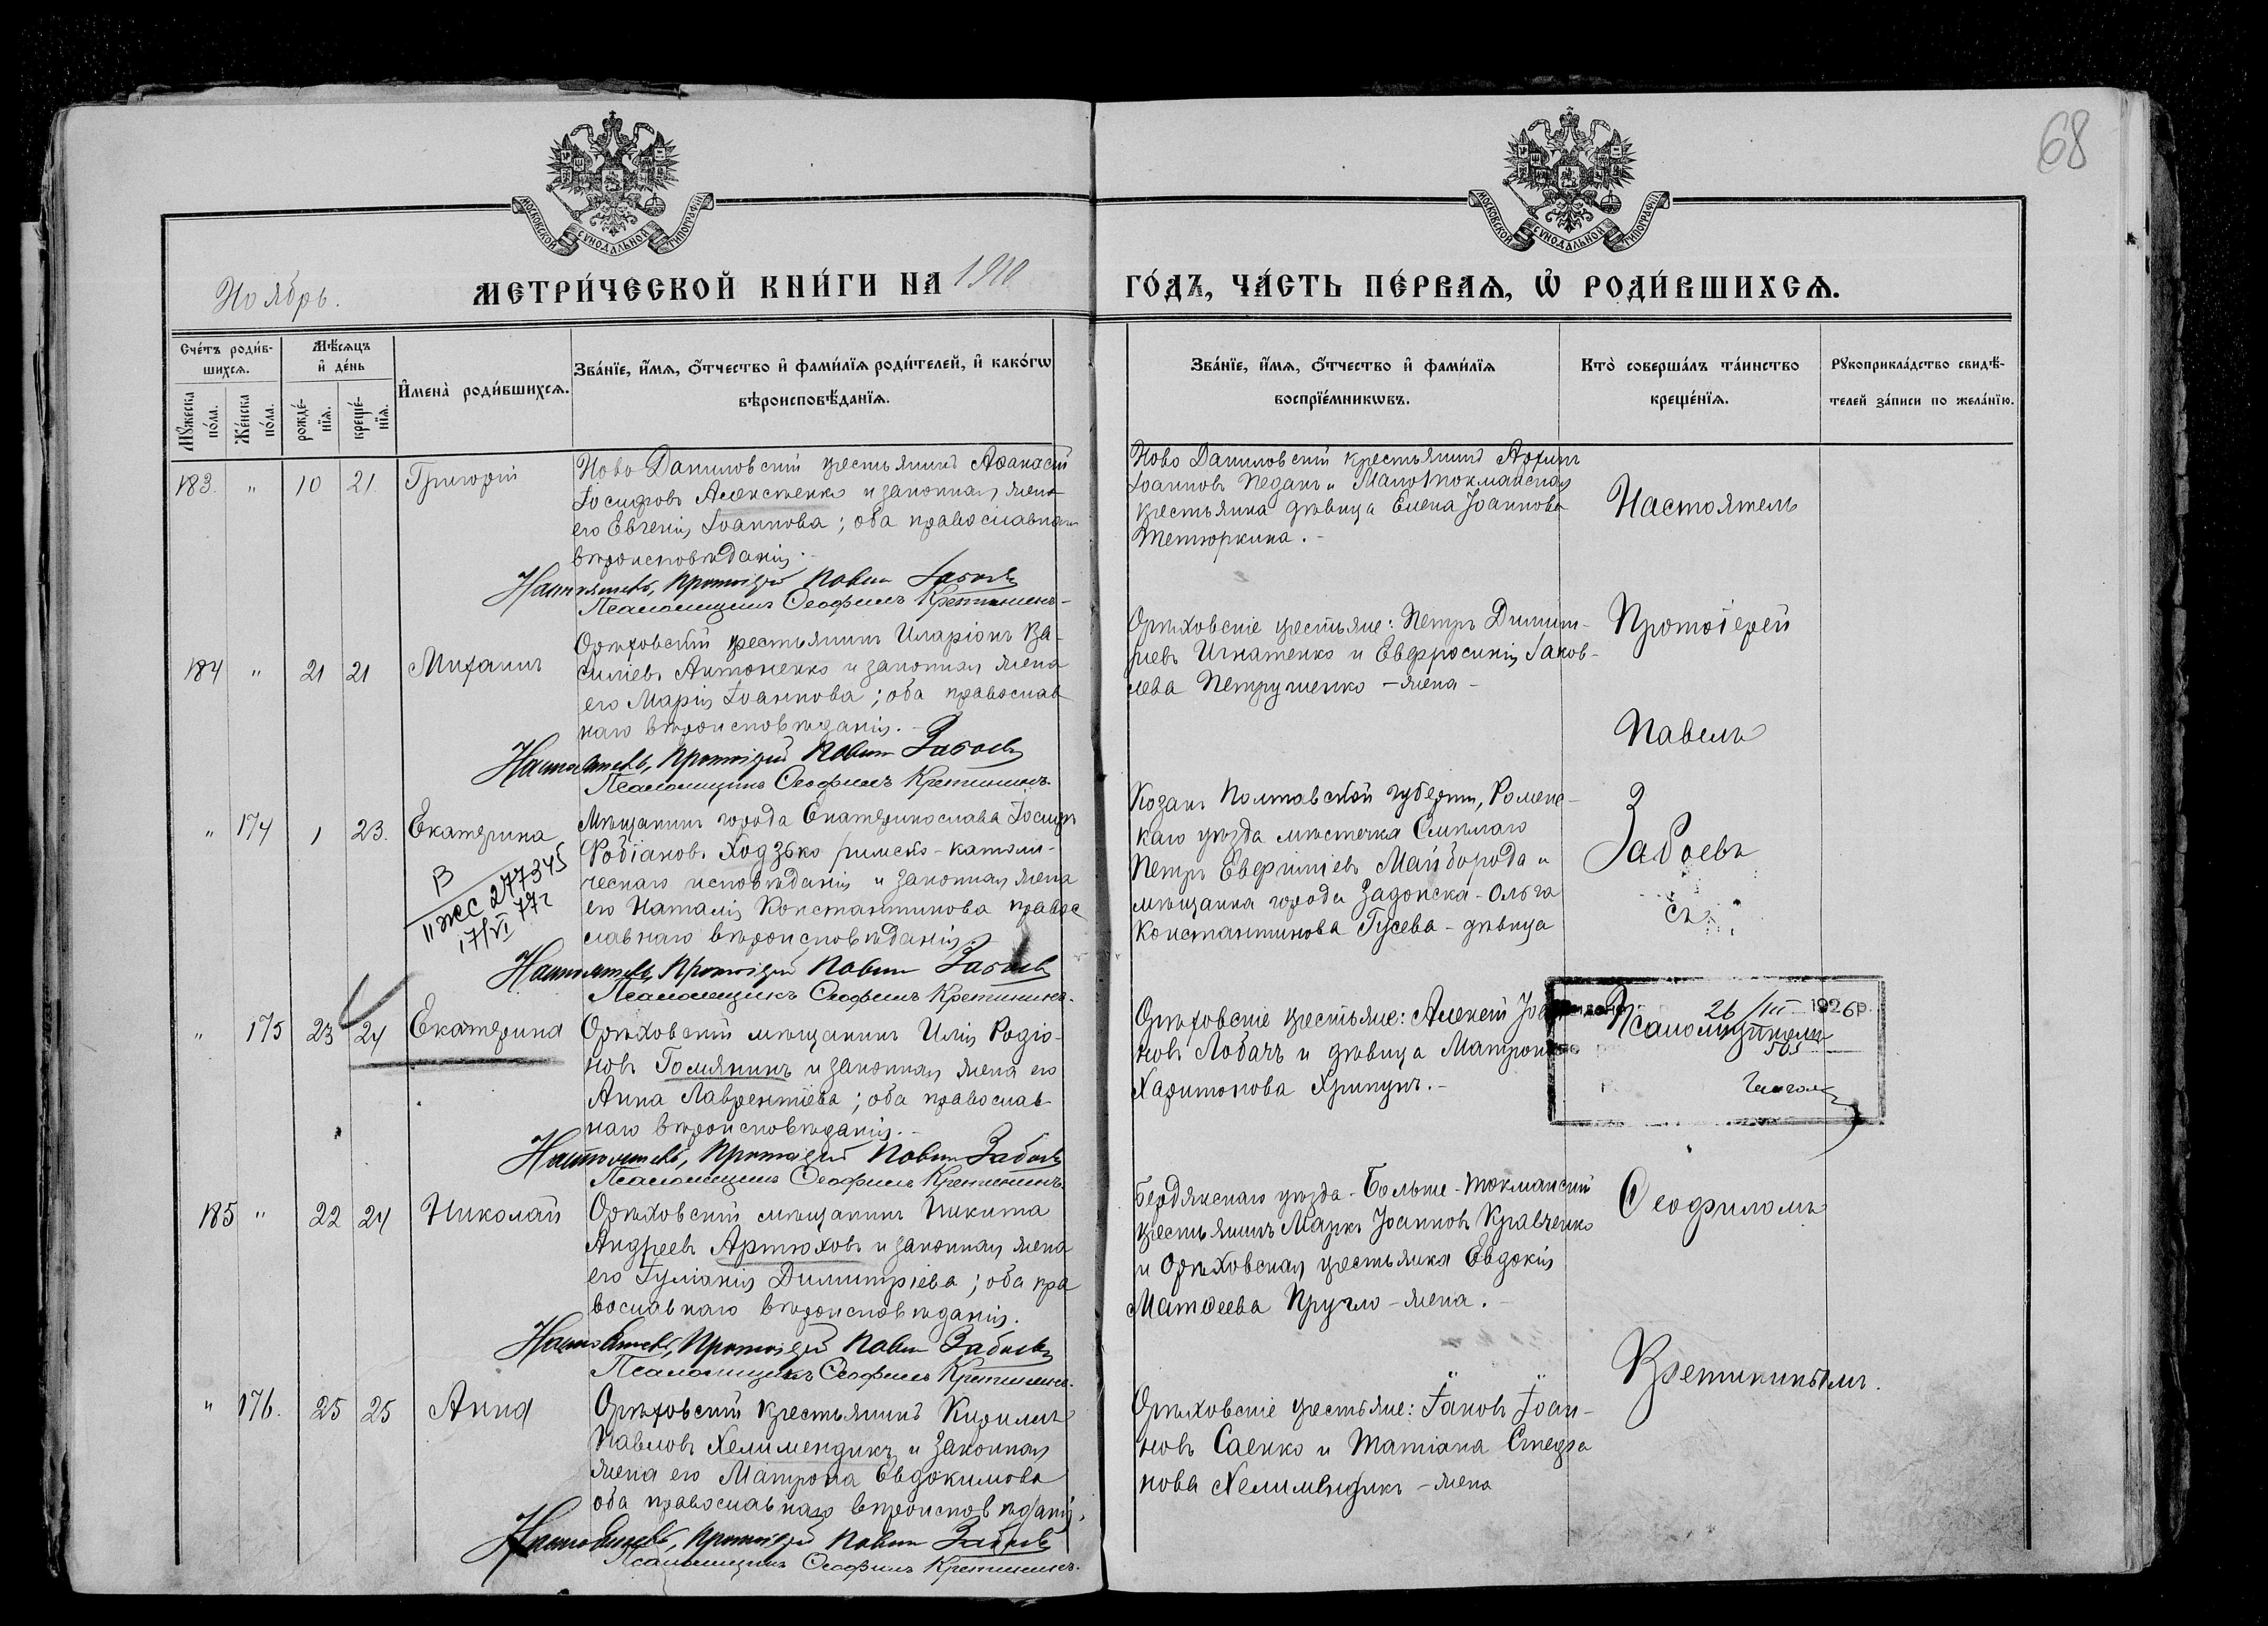 68
МОСКОВСКОЙ СѴНОДАЛЬНОЙ ТИПОГРАФІИ
МОСКОВСКОЙ СѴНОДАЛЬНОЙ ТИПОГРАФІИ
Ноябрь.
МЕТРИ́ЧЕСКОЙ КНИ́ГИ НА 1910
ГО́ДЪ, ЧА́СТЬ ПЕ́РВАѦ, Ѡ҆ РОДИ́ВШИХСѦ.
Сче́тъ роди́в-
шихсѧ.
Мꙋ́жеска по́ла.
Же́нска по́ла.
Мѣ́сѧцъ
и҆ де́нь
рожде́-
нїѧ.
креще́-
нїѧ.
И҆мена̀ роди́вшихсѧ.
Зва́нїе, и҆́мѧ, ѻ҆́тчество и҆ фами́лїѧ роди́телей, и҆ како́гѡ
вѣроисповѣ́данїѧ.
Зва́нїе, и҆́мѧ, ѻ҆́тчество и҆ фами́лїѧ
воспрїе́мникѡвъ.
Кто̀ соверша́лъ та́инство
креще́нїѧ.
Рꙋкоприкла́дство свидѣ́-
телей за́писи по жела́нїю.
183. " 10 21. Григорій
Ново Даниловскій крестьянинъ Аѳанасій
Іосифовъ Алексѣенко и законная жена
его Евгенія Іоаннова; оба православнаго
вѣроисповѣданія.
Настоятель, Протоіерей Павелъ Забоевъ
Псаломщикъ Ѳеофилъ Кретининъ
Ново Даниловскій крестьянинъ Архипъ
Іоанновъ Педанъ и Мало Токмакская
крестьянка дѣвица Елена Іоаннова
Тетюркина.
Настоятель
184 " 21 21 Михаилъ
Орѣховскій крестьянинъ Иларіонъ Ва-
силіевъ Антоненко и законная жена
его Марія Іоаннова; оба православ
наго вѣроисповѣданія.
Настоятель, Протоіерей Павелъ Забоевъ
Псаломщикъ Ѳеофилъ Кретининъ.
Орѣховскіе крестьяне: Петръ Димит-
ріевъ Игнатенко и Евфросинія Іаков-
лева Петрушенко - жена -
Протоіерей
Павелъ
" 174 1 23. Екатерина
Мѣщанинъ города Екатеринослава Іосифъ
Фабіановъ Ходзько римско-католи-
ческаго исповѣданія и законная жена
его Наталія Константинова правос
славнаго вѣроисповѣданія.
Настоятель, Протоіерей Павелъ Забоевъ
Псаломщикъ Ѳеофилъ Кретининъ.
В
II ЖС 277345
17/VI 77г
Козакъ Полтавской губерніи, Роменс-
каго уѣзда мѣстечка Смѣлаго
Петръ Евфиміевъ Майборода и
мѣщанка города Задонска - Ольга
Константинова Гусева - дѣвица
Забоевъ
съ
" 175 23 24 Екатерина
Орѣховскій мѣщанинъ Илія Родіо-
новъ Голмянинъ и законная жена его
Анна Лаврентіева; оба православ
наго вѣроисповѣданія.
Настоятель, Протоіерей Павелъ Забоевъ
Псаломщикъ Ѳеофилъ Кретининъ
Орѣховскіе крестьяне: Алексій Іоан
новъ Лобачъ и дѣвица Матрона
Харитонова Хрипунъ.
26/III 1926р.
Псаломщикомъ
185 " 22 24 Николай
Орѣховскій мѣщанинъ Никита
Андреевъ Артюховъ и законная жена
его Іуліанія Димитріева; оба пра
вославнаго вѣроисповѣданія.
Настоятель, Протоіерей Павелъ Забоевъ
Псаломщикъ Ѳеофилъ Кретининъ.
Бердянскаго уѣзда - Больше-Токмакскій
крестьянинъ Маркъ Іоанновъ Кравченко
и Орѣховская крестьянка Евдокія
Матѳеева Кругло - жена.
Ѳеофиломъ
Кретининымъ.
" 176. 25 25 Анна
Орѣховскій крестьянинъ Кириллъ
Павловъ Хелимендикъ и законная
жена его Матрона Евдокимова
оба православнаго вѣроисповѣданія.
Настоятель, Протоіерей Павелъ Забоевъ
Псаломщикъ Ѳеофилъ Кретининъ.
Орѣховскіе крестьяне: Іаковъ Іоан-
новъ Саенко и Татіана Стефа
нова Хелимендикъ - жена